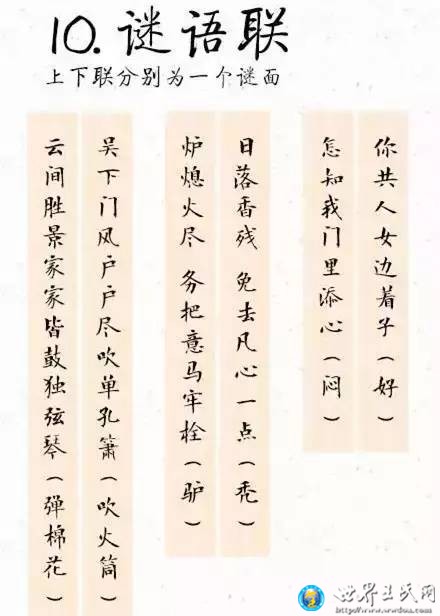 10.谜语联
上下联分别为一个谜面
你共人女边着子（好）
怎知我门里添心（闷）
日落香残 免去凡心一点（秃）
炉熄火尽 务把意马牢栓（驴）
吴下门风户户尽吹单孔箫（吹火筒）
云间胜景家家皆鼓独弦琴（弹棉花）
世界王氏网
http://www.wwdou.com